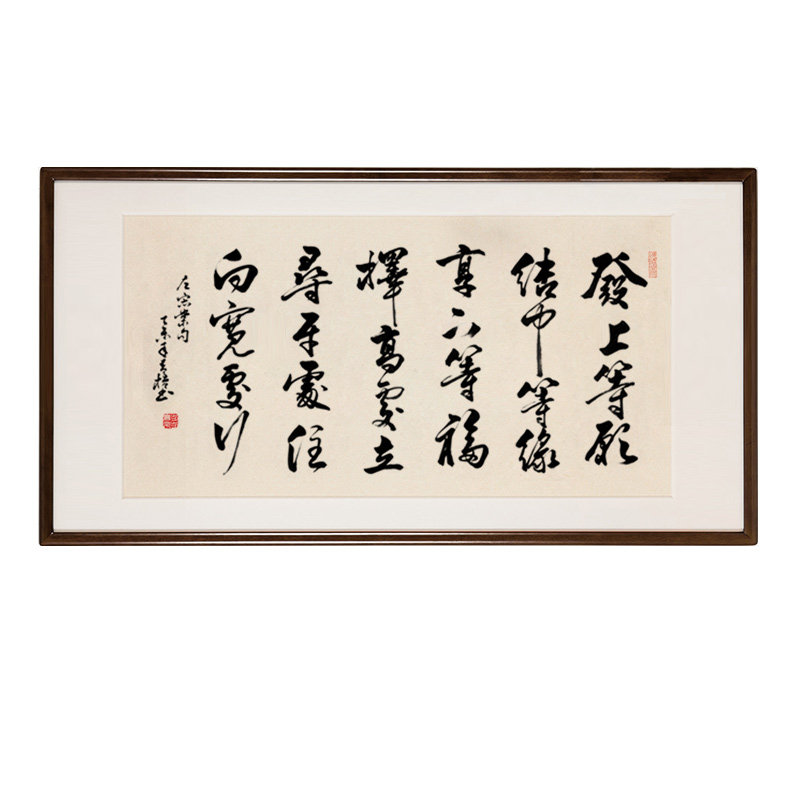 發上等願
結中等緣
享下等福
擇高處立
尋平處住
向寬處行
左宗棠句